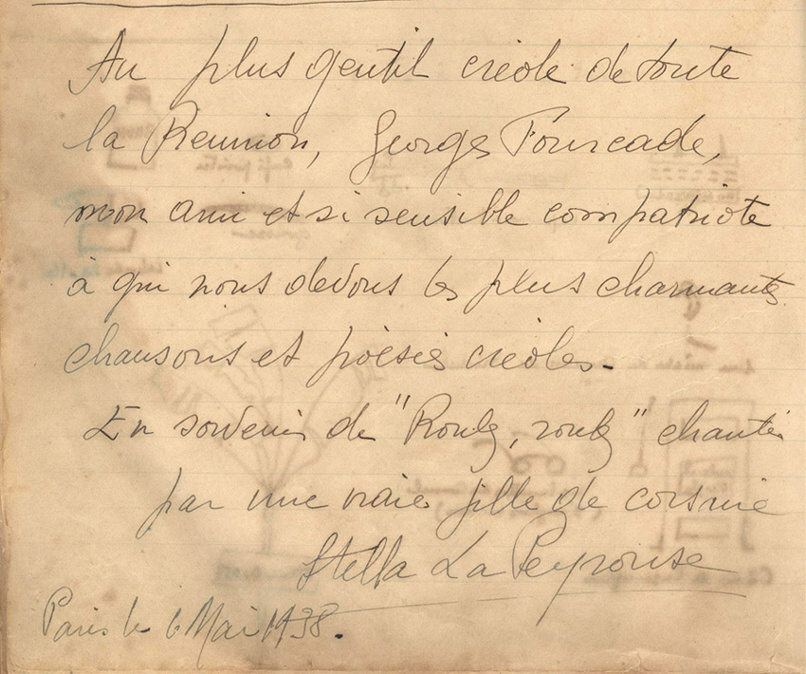 Au plus gentil créole de toute
la Réunion, Georges Fourcade,
mon ami et si sensible compatriote
à qui nous devons les plus charmantes
chansons et poésies créoles.
En souvenir de "Roulé, roulé" chantés
par une vraie fille de corsaire
Stella La Peyrouse
Paris le 6 Mai 1938.